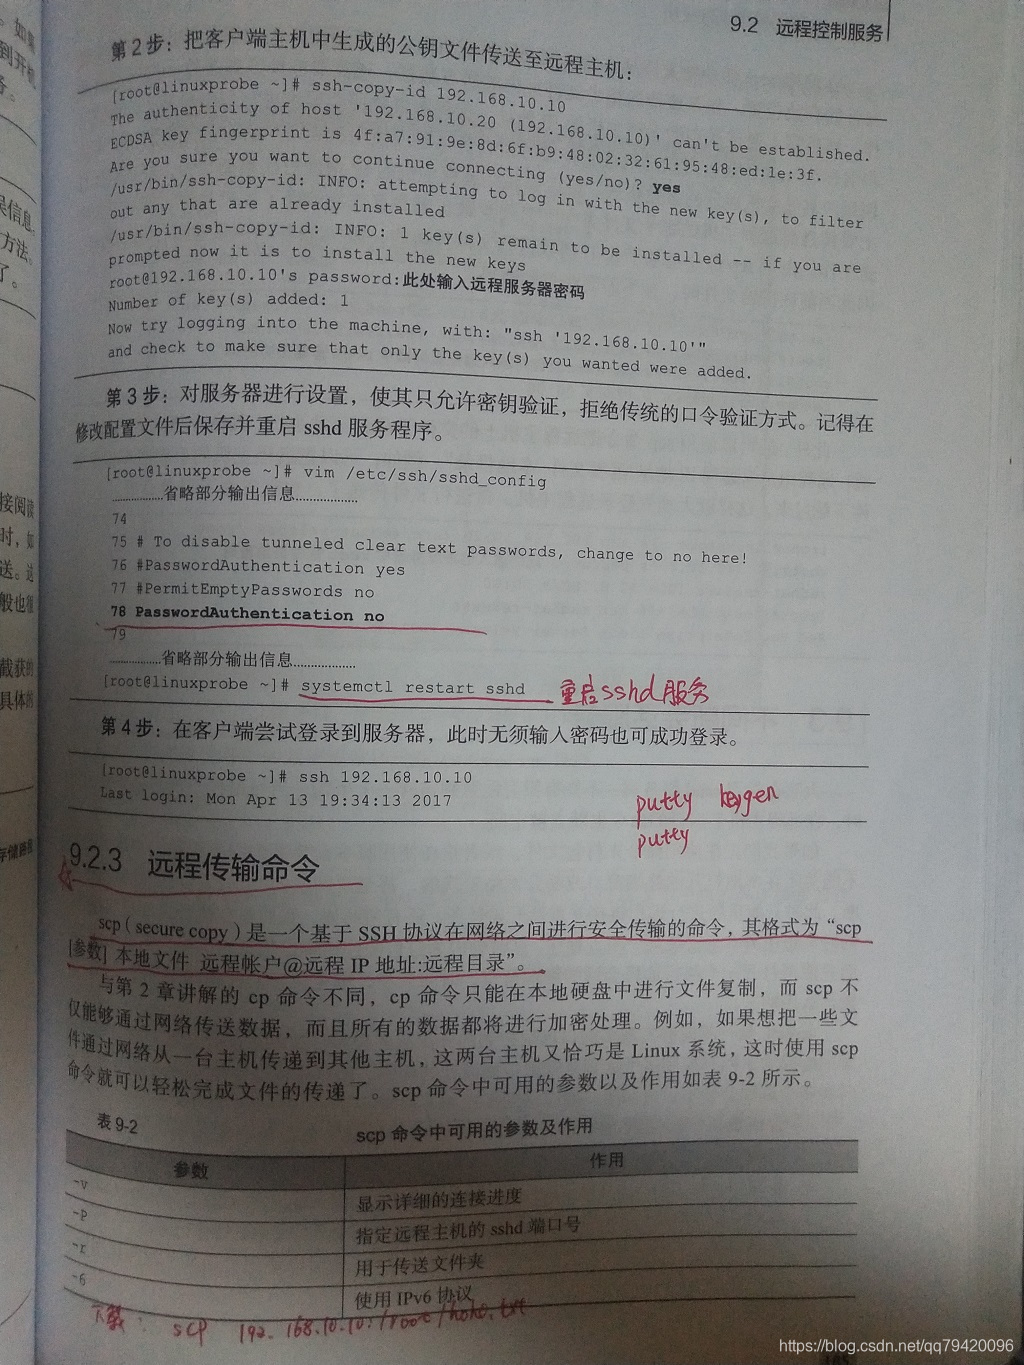 9.2 远程控制服务
第 2 步：把客户端主机中生成的公钥文件传送至远程主机：
[root@linuxprobe ~]# ssh-copy-id 192.168.10.10
The authenticity of host '192.168.10.20 (192.168.10.10)' can't be established.
ECDSA key fingerprint is 4f:a7:91:9e:8d:6f:b9:48:02:32:61:95:48:ed:1e:3f.
Are you sure you want to continue connecting (yes/no)? yes
/usr/bin/ssh-copy-id: INFO: attempting to log in with the new key(s), to filter
out any that are already installed
/usr/bin/ssh-copy-id: INFO: 1 key(s) remain to be installed -- if you are
prompted now it is to install the new keys
root@192.168.10.10's password:此处输入远程服务器密码
Number of key(s) added: 1
Now try logging into the machine, with: "ssh '192.168.10.10'"
and check to make sure that only the key(s) you wanted were added.
第 3 步：对服务器进行设置，使其只允许密钥验证，拒绝传统的口令验证方式。记得在
修改配置文件后保存并重启 sshd 服务程序。
[root@linuxprobe ~]# vim /etc/ssh/sshd_config
………………省略部分输出信息………………
74
75 # To disable tunneled clear text passwords, change to no here!
76 #PasswordAuthentication yes
77 #PermitEmptyPasswords no
78 PasswordAuthentication no
79
………………省略部分输出信息………………
[root@linuxprobe ~]# systemctl restart sshd 重启sshd服务
第 4 步：在客户端尝试登录到服务器，此时无须输入密码也可成功登录。
[root@linuxprobe ~]# ssh 192.168.10.10
Last login: Mon Apr 13 19:34:13 2017
putty keygen
putty
9.2.3 远程传输命令
scp（secure copy）是一个基于 SSH 协议在网络之间进行安全传输的命令，其格式为“scp
[参数] 本地文件 远程帐户@远程 IP 地址:远程目录”。
与第 2 章讲解的 cp 命令不同，cp 命令只能在本地硬盘中进行文件复制，而 scp 不
仅能够通过网络传送数据，而且所有的数据都将进行加密处理。例如，如果想把一些文
件通过网络从一台主机传递到其他主机，这两台主机又恰巧是 Linux 系统，这时使用 scp
命令就可以轻松完成文件的传递了。scp 命令中可用的参数以及作用如表 9-2 所示。
表 9-2 scp 命令中可用的参数及作用
参数 作用
-v 显示详细的连接进度
-P 指定远程主机的 sshd 端口号
-r 用于传送文件夹
-6 使用 IPv6 协议
下载： scp 192.168.10.10:/root/hoho.txt
https://blog.csdn.net/qq79420096